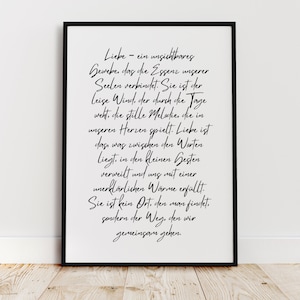 Liebe – ein unsichtbares
Gewebe, das die Essenz unserer
Seelen verbindet. Sie ist der
leise Wind, der durch die Tage
weht, die stille Melodie, die in
unseren Herzen spielt. Liebe ist
das, was zwischen den Worten
liegt, in den kleinen Gesten
verweilt und uns mit einer
unerklärlichen Wärme erfüllt.
Sie ist kein Ort, den man findet,
sondern der Weg, den wir
gemeinsam gehen.